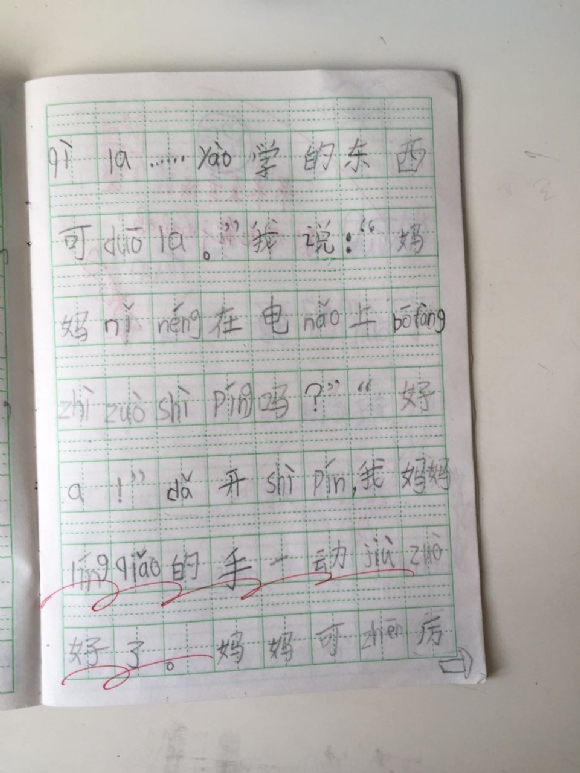 qì la ……yào学的东西
可duō la。”我说：“妈
妈nǐ néng在电nǎo上bō fàng
zhì zuò shì pín吗？”“好
a！”dǎ开shì pín,我妈妈
líng qiǎo的手一动jiù zuò
好了。妈妈可zhēn厉